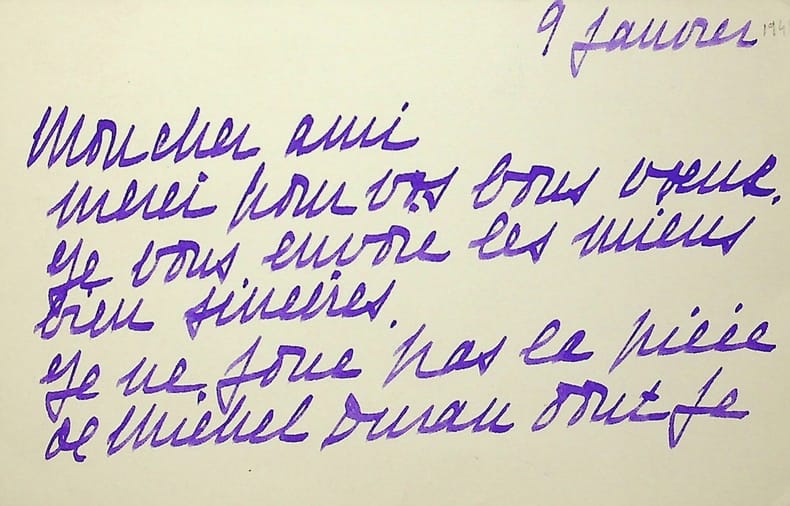 9 Janvier
Mon cher ami
merci pour vos bons vœux.
Je vous envoie les miens
bien sincères.
Je ne joue pas la pièce
de Michel Duran dont je